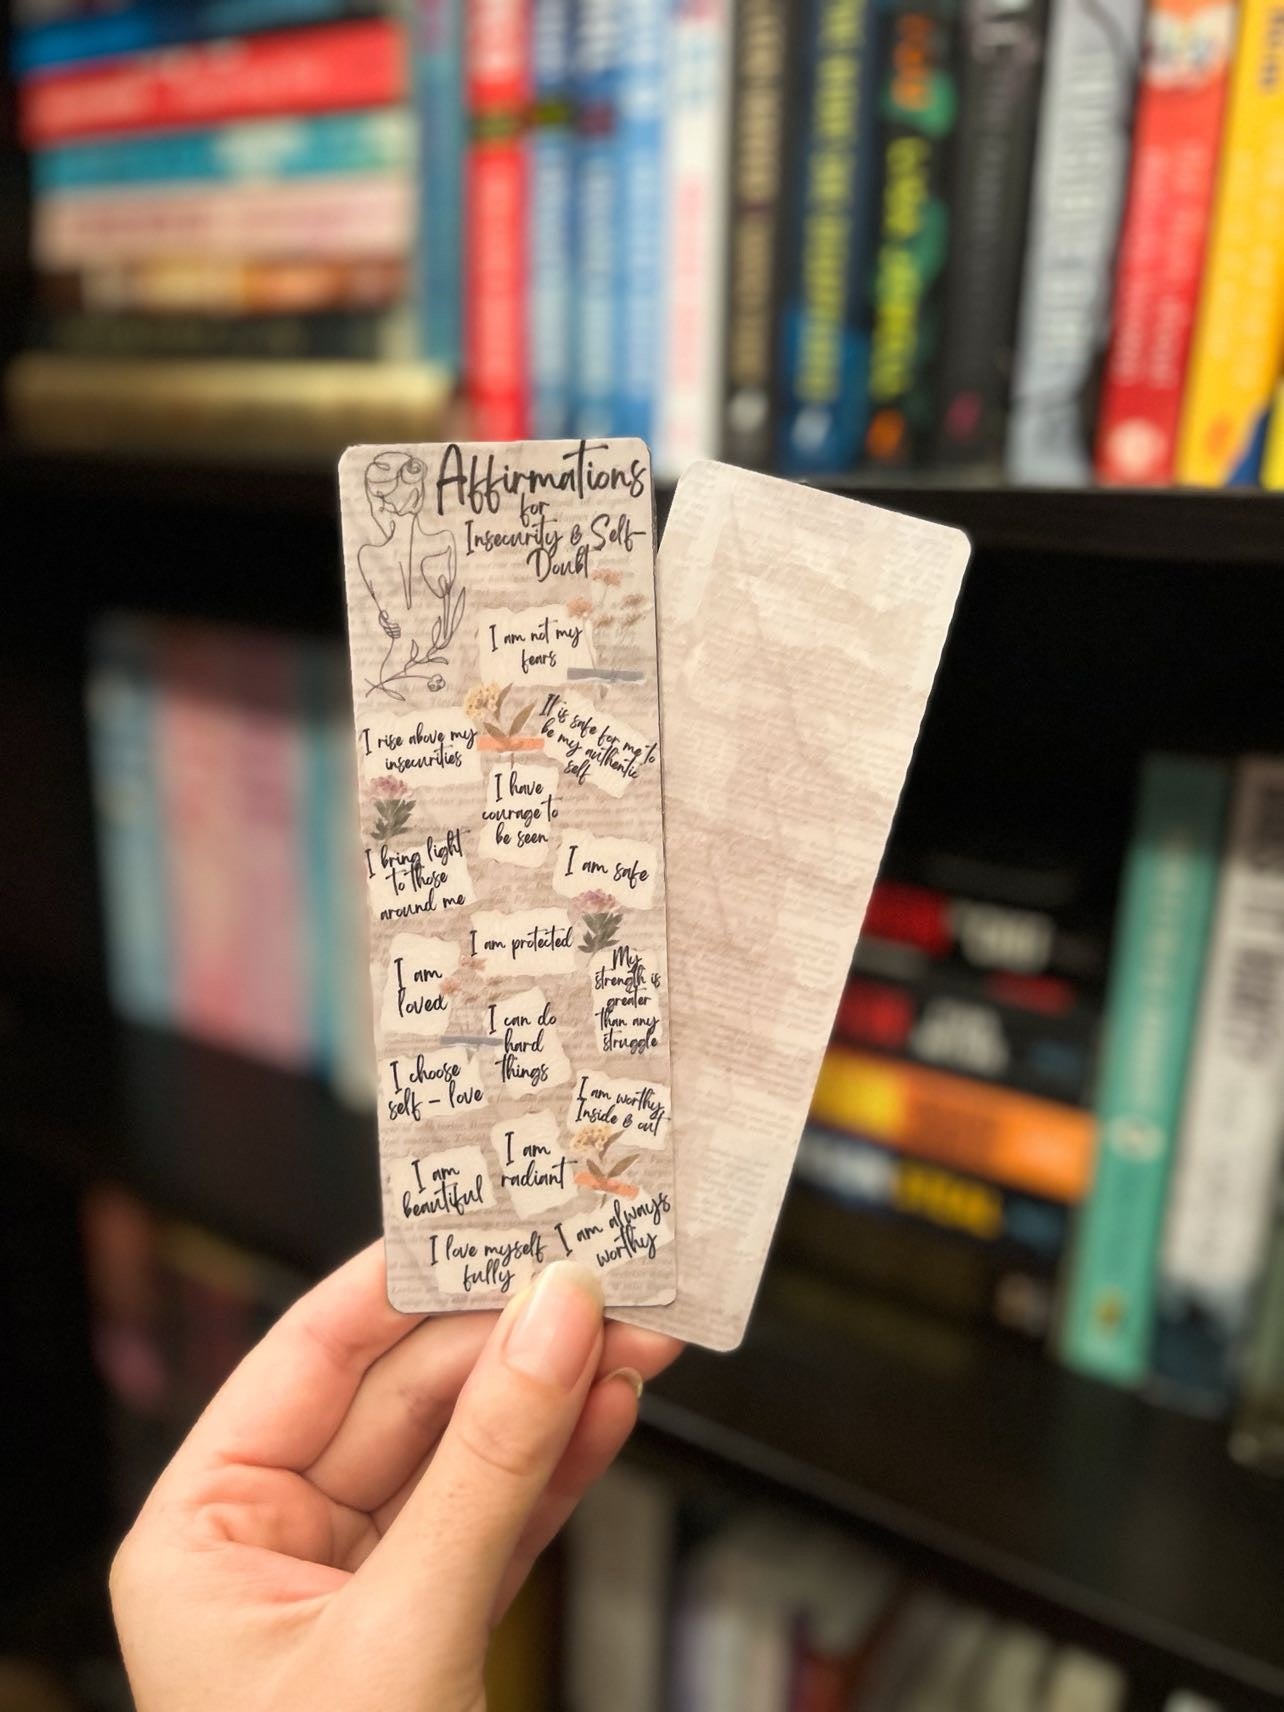 Affirmations
for
Insecurity & Self-
Doubt
I am not my
fears
I rise above my
insecurities
It is safe for me to
be my authentic
self
I have
courage to
be seen
I bring light
to those
around me
I am safe
I am protected
I am
loved
My
strength is
greater
than any
struggle
I can do
hard
things
I choose
self - love
I am worthy
Inside & out
I am
radiant
I am
beautiful
I am always
worthy
I love myself
fully